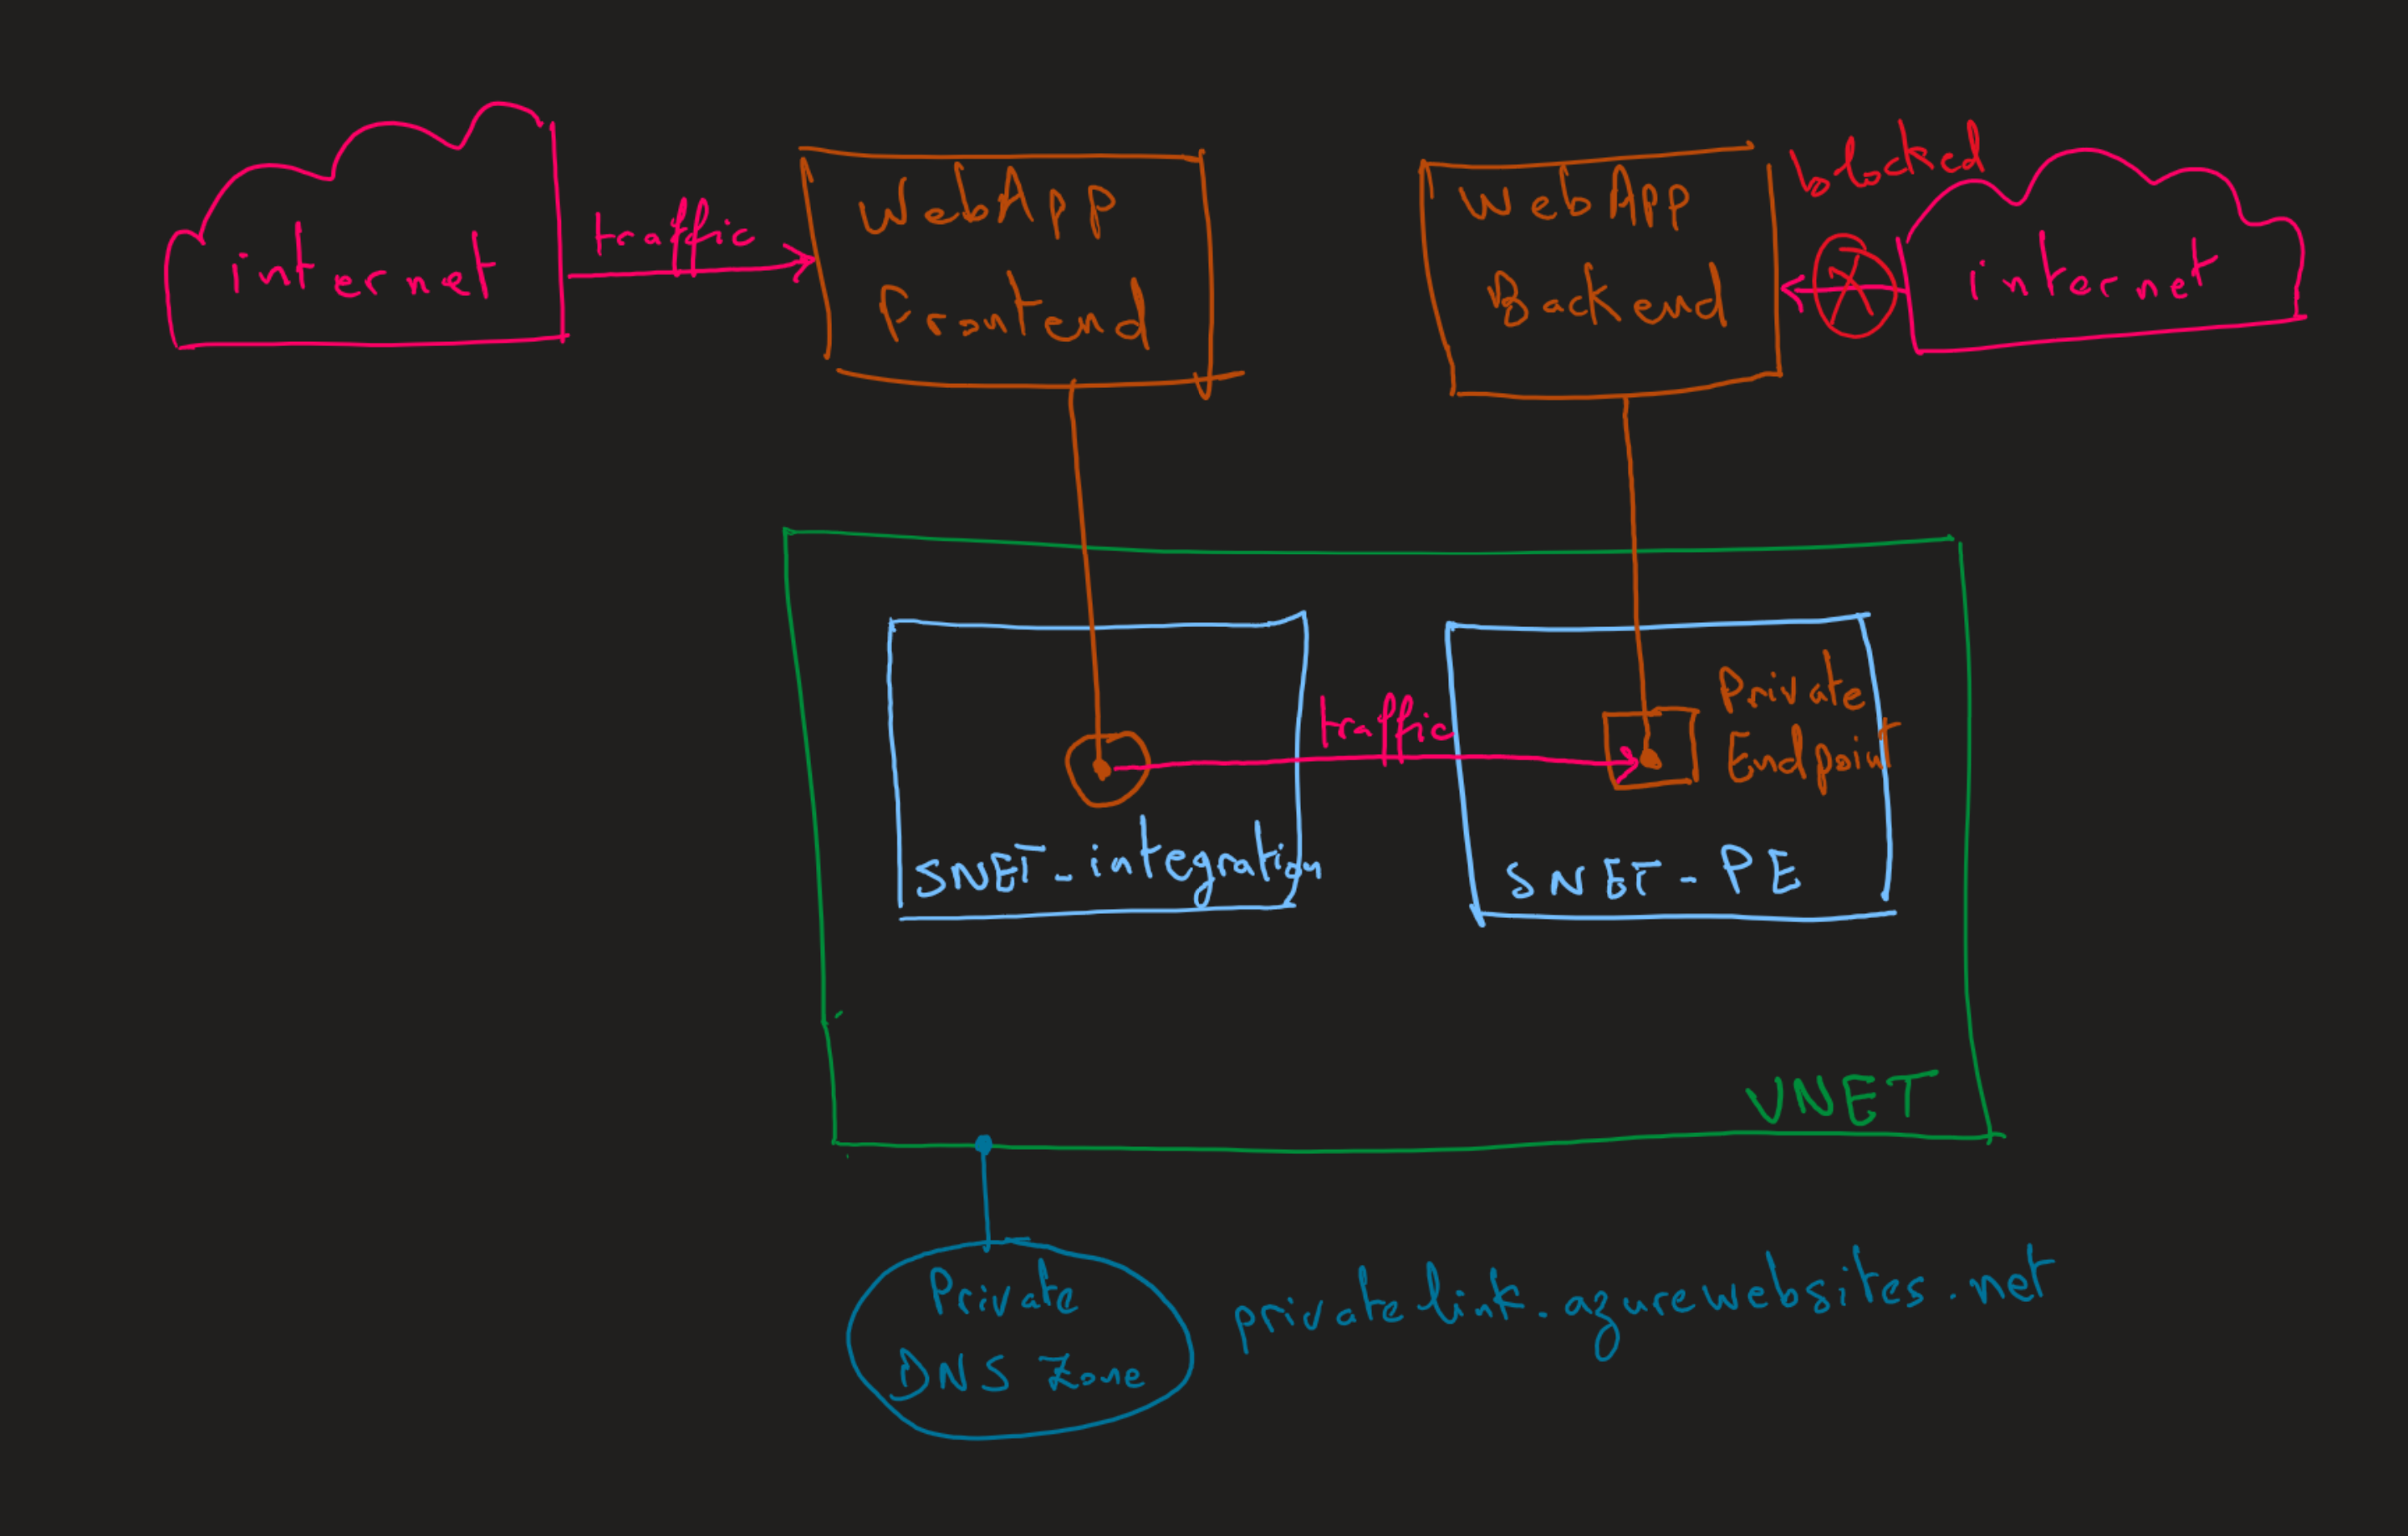 internet
traffic
WebApp
Frontend
WebApp
Backend
blocked
internet
traffic
Private
Endpoint
SNET-integration
SNET-PE
VNET
Private
DNS Zone
privatelink.azurewebsites.net